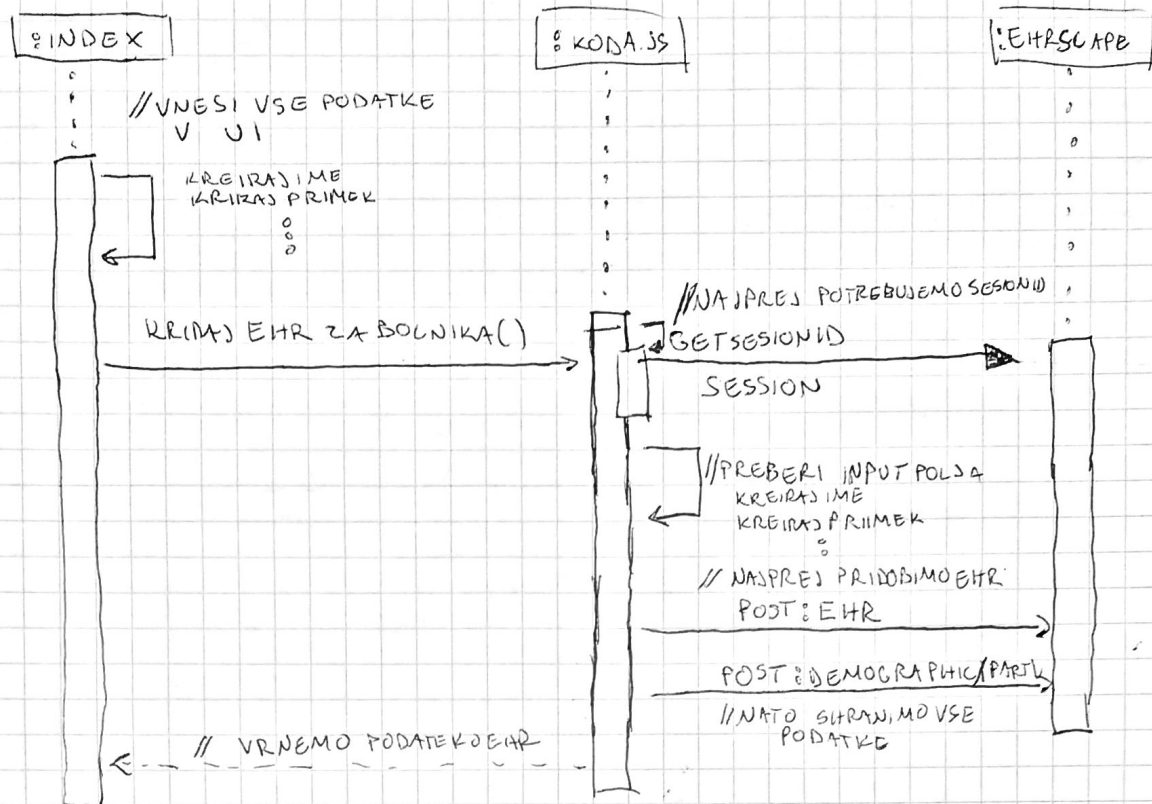 :INDEX
:KODA.JS
:EHRSCAPE
//VNESI VSE PODATKE
V UI
KREIRAJIME
KRIIRAJ PRIMEK
//NAJPREJ POTREBUJEMO SESIONID
KRIRAJ EHR ZA BOLNIKA()
GETSESIONID
SESSION
//PREBERI INPUT POLJA
KREIRAJ IME
KREIRAJ PRIIMEK
// NAJPREJ PRIDOBIMO EHR
POST:EHR
POST:DEMOGRAPHIC/PARTY
//NATO SHRANIMO VSE
PODATKE
// VRNEMO PODATEK O EHR